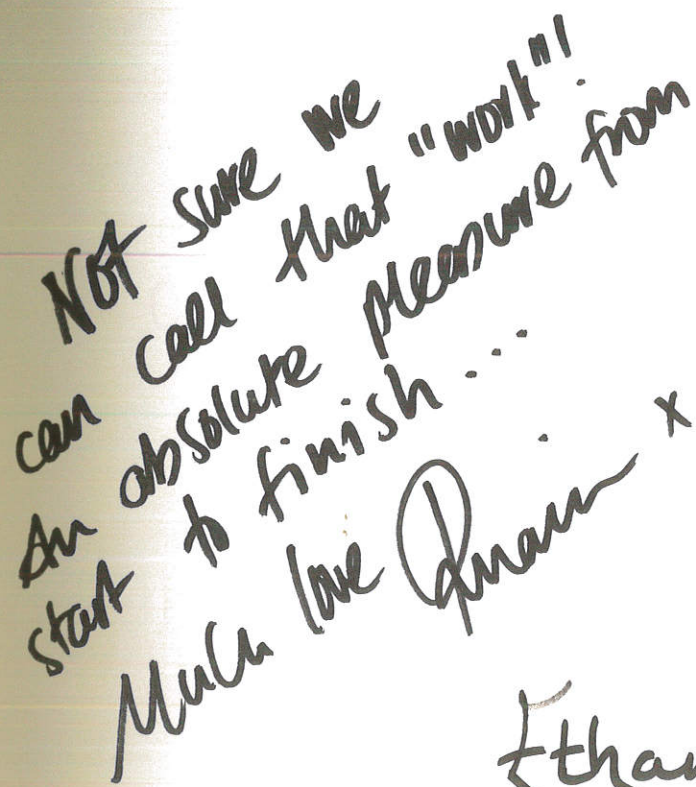 Not sure we
can call that "work"!
An absolute pleasure from
start to finish...
Much love x
Ethan